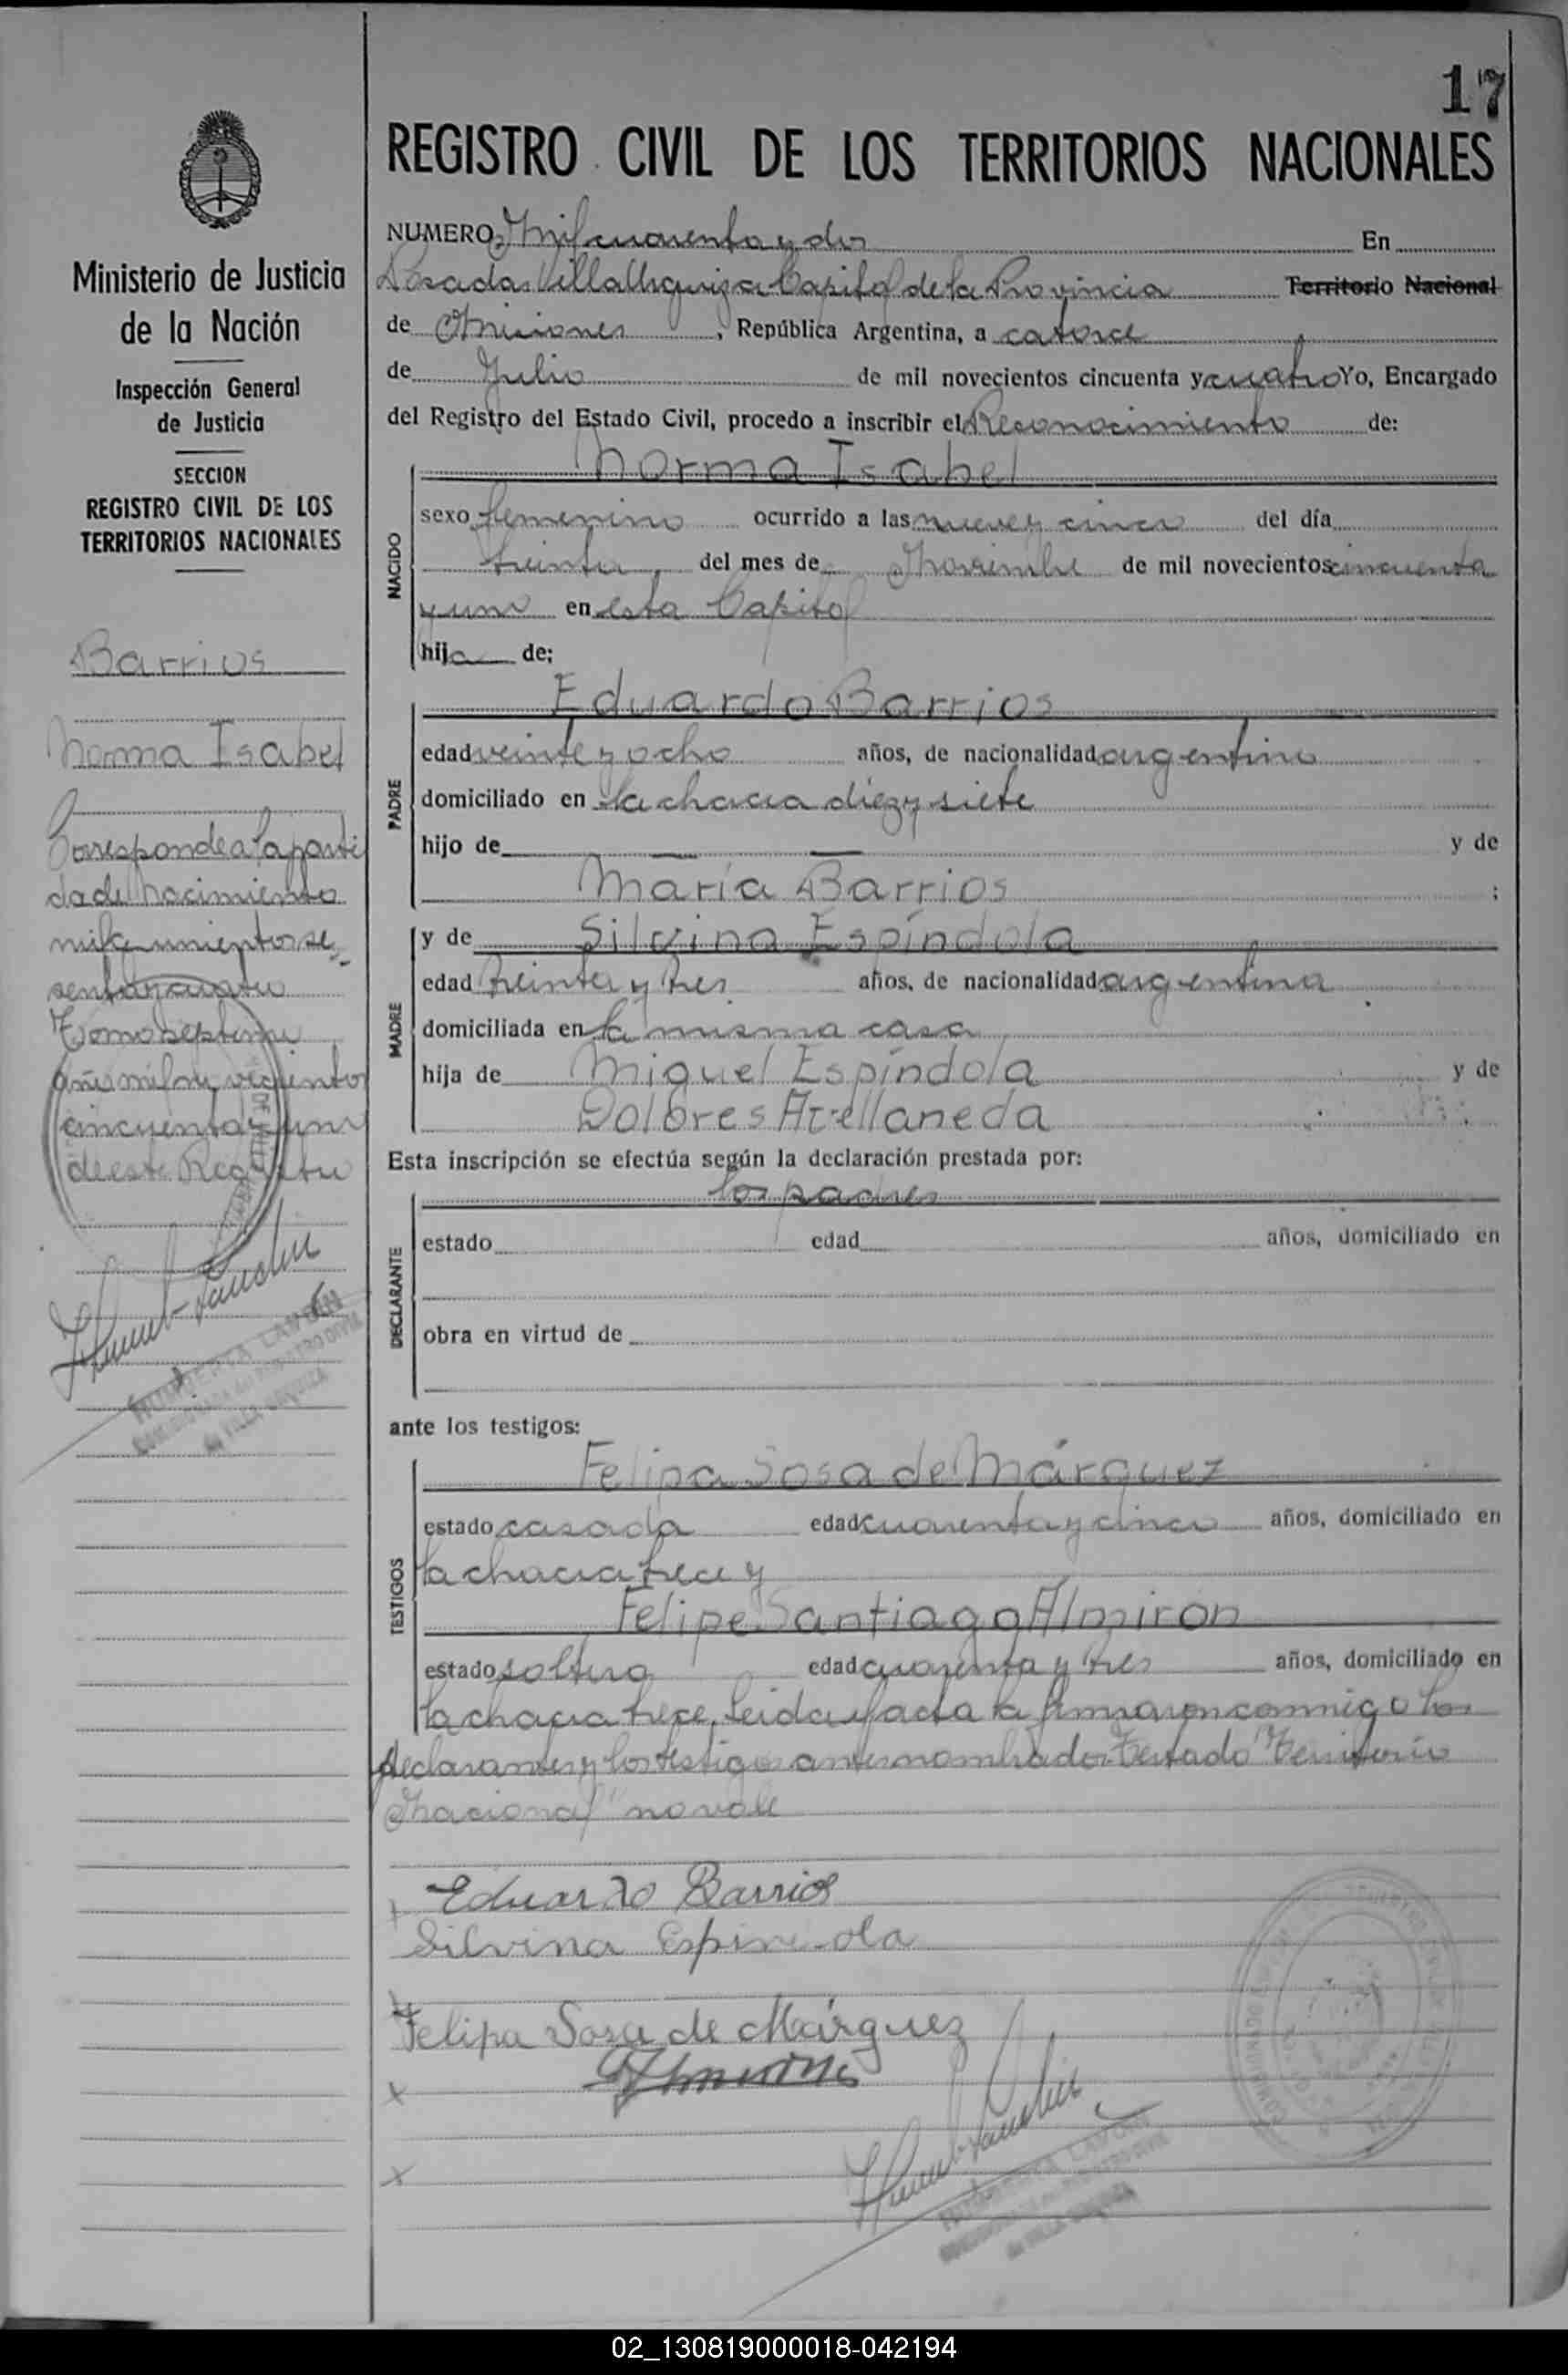 17
REGISTRO CIVIL DE LOS TERRITORIOS NACIONALES
Ministerio de Justicia
de la Nación
Inspección General
de Justicia
SECCION
REGISTRO CIVIL DE LOS
TERRITORIOS NACIONALES
Barrios
Norma Isabel
Corresponde a la parti
da de Nacimiento
mil quinientos se-
senta y cuatro
Tomo septimo
año mil novecientos
cincuenta y uno
de este Registro
NUMERO Mil cuarenta y dos En
Posadas Villa Urquiza Capital de la Provincia Territorio Nacional
de Misiones, República Argentina, a catorce
de Julio de mil novecientos cincuenta y cuatro Yo, Encargado
del Registro del Estado Civil, procedo a inscribir el Reconocimiento de:
NACIDO
Norma Isabel
sexo femenino ocurrido a las nueve y cinco del día
treinta, del mes de Noviembre de mil novecientos cincuenta
y uno en esta Capital
hija de:
PADRE
Eduardo Barrios
edad veinte y ocho años, de nacionalidad argentino
domiciliado en la chacra diez y siete
hijo de — — y de
María Barrios ;
MADRE
y de Silvina Espíndola
edad treinta y tres años, de nacionalidad argentina
domiciliada en la misma casa
hija de Miguel Espíndola y de
Dolores Avellaneda
Esta inscripción se efectúa según la declaración prestada por:
DECLARANTE
los padres
estado edad años, domiciliado en
obra en virtud de
ante los testigos:
TESTIGOS
Felipa Sosa de Márquez
estado casada edad cuarenta y cinco años, domiciliado en
la chacra trece y
Felipe Santiago Almirón
estado soltero edad cuarenta y tres años, domiciliado en
la chacra trece. Leida el acta la firmaron conmigo los
declarantes y los testigos antes nombrados. Testado "Territorio
Nacional" no vale
Eduardo Barrios
Silvina Espindola
Felipa Sosa de Márquez
02_130819000018-042194